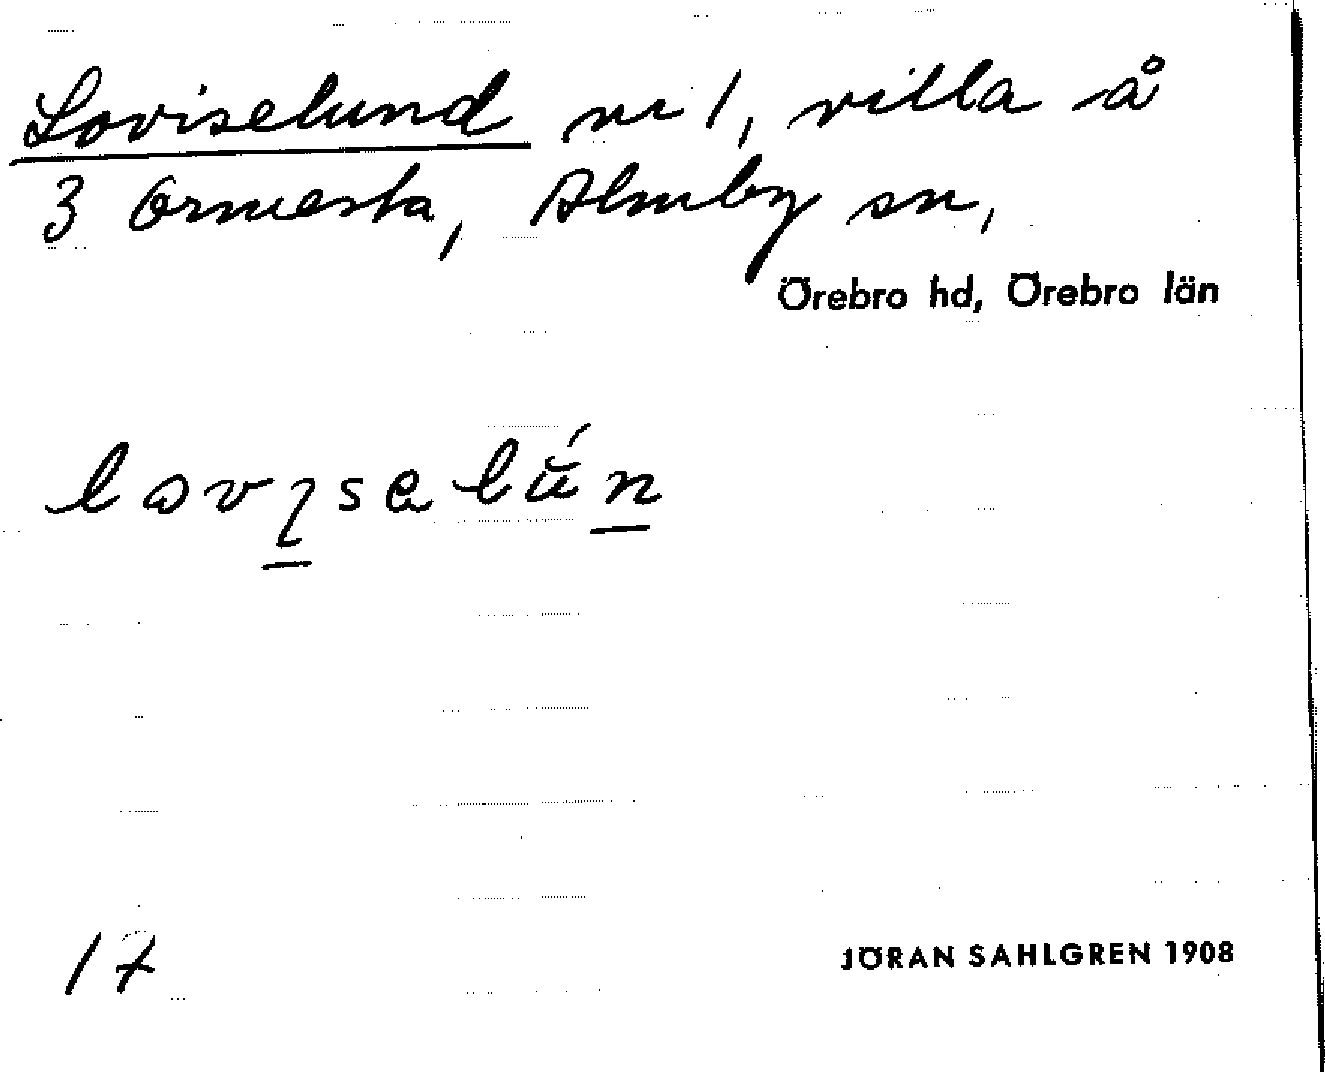 Loviselund nr 1, villa å
3 Ormesta, Almby sn,
Örebro hd, Örebro län
17
JÖRAN SAHLGREN 1908